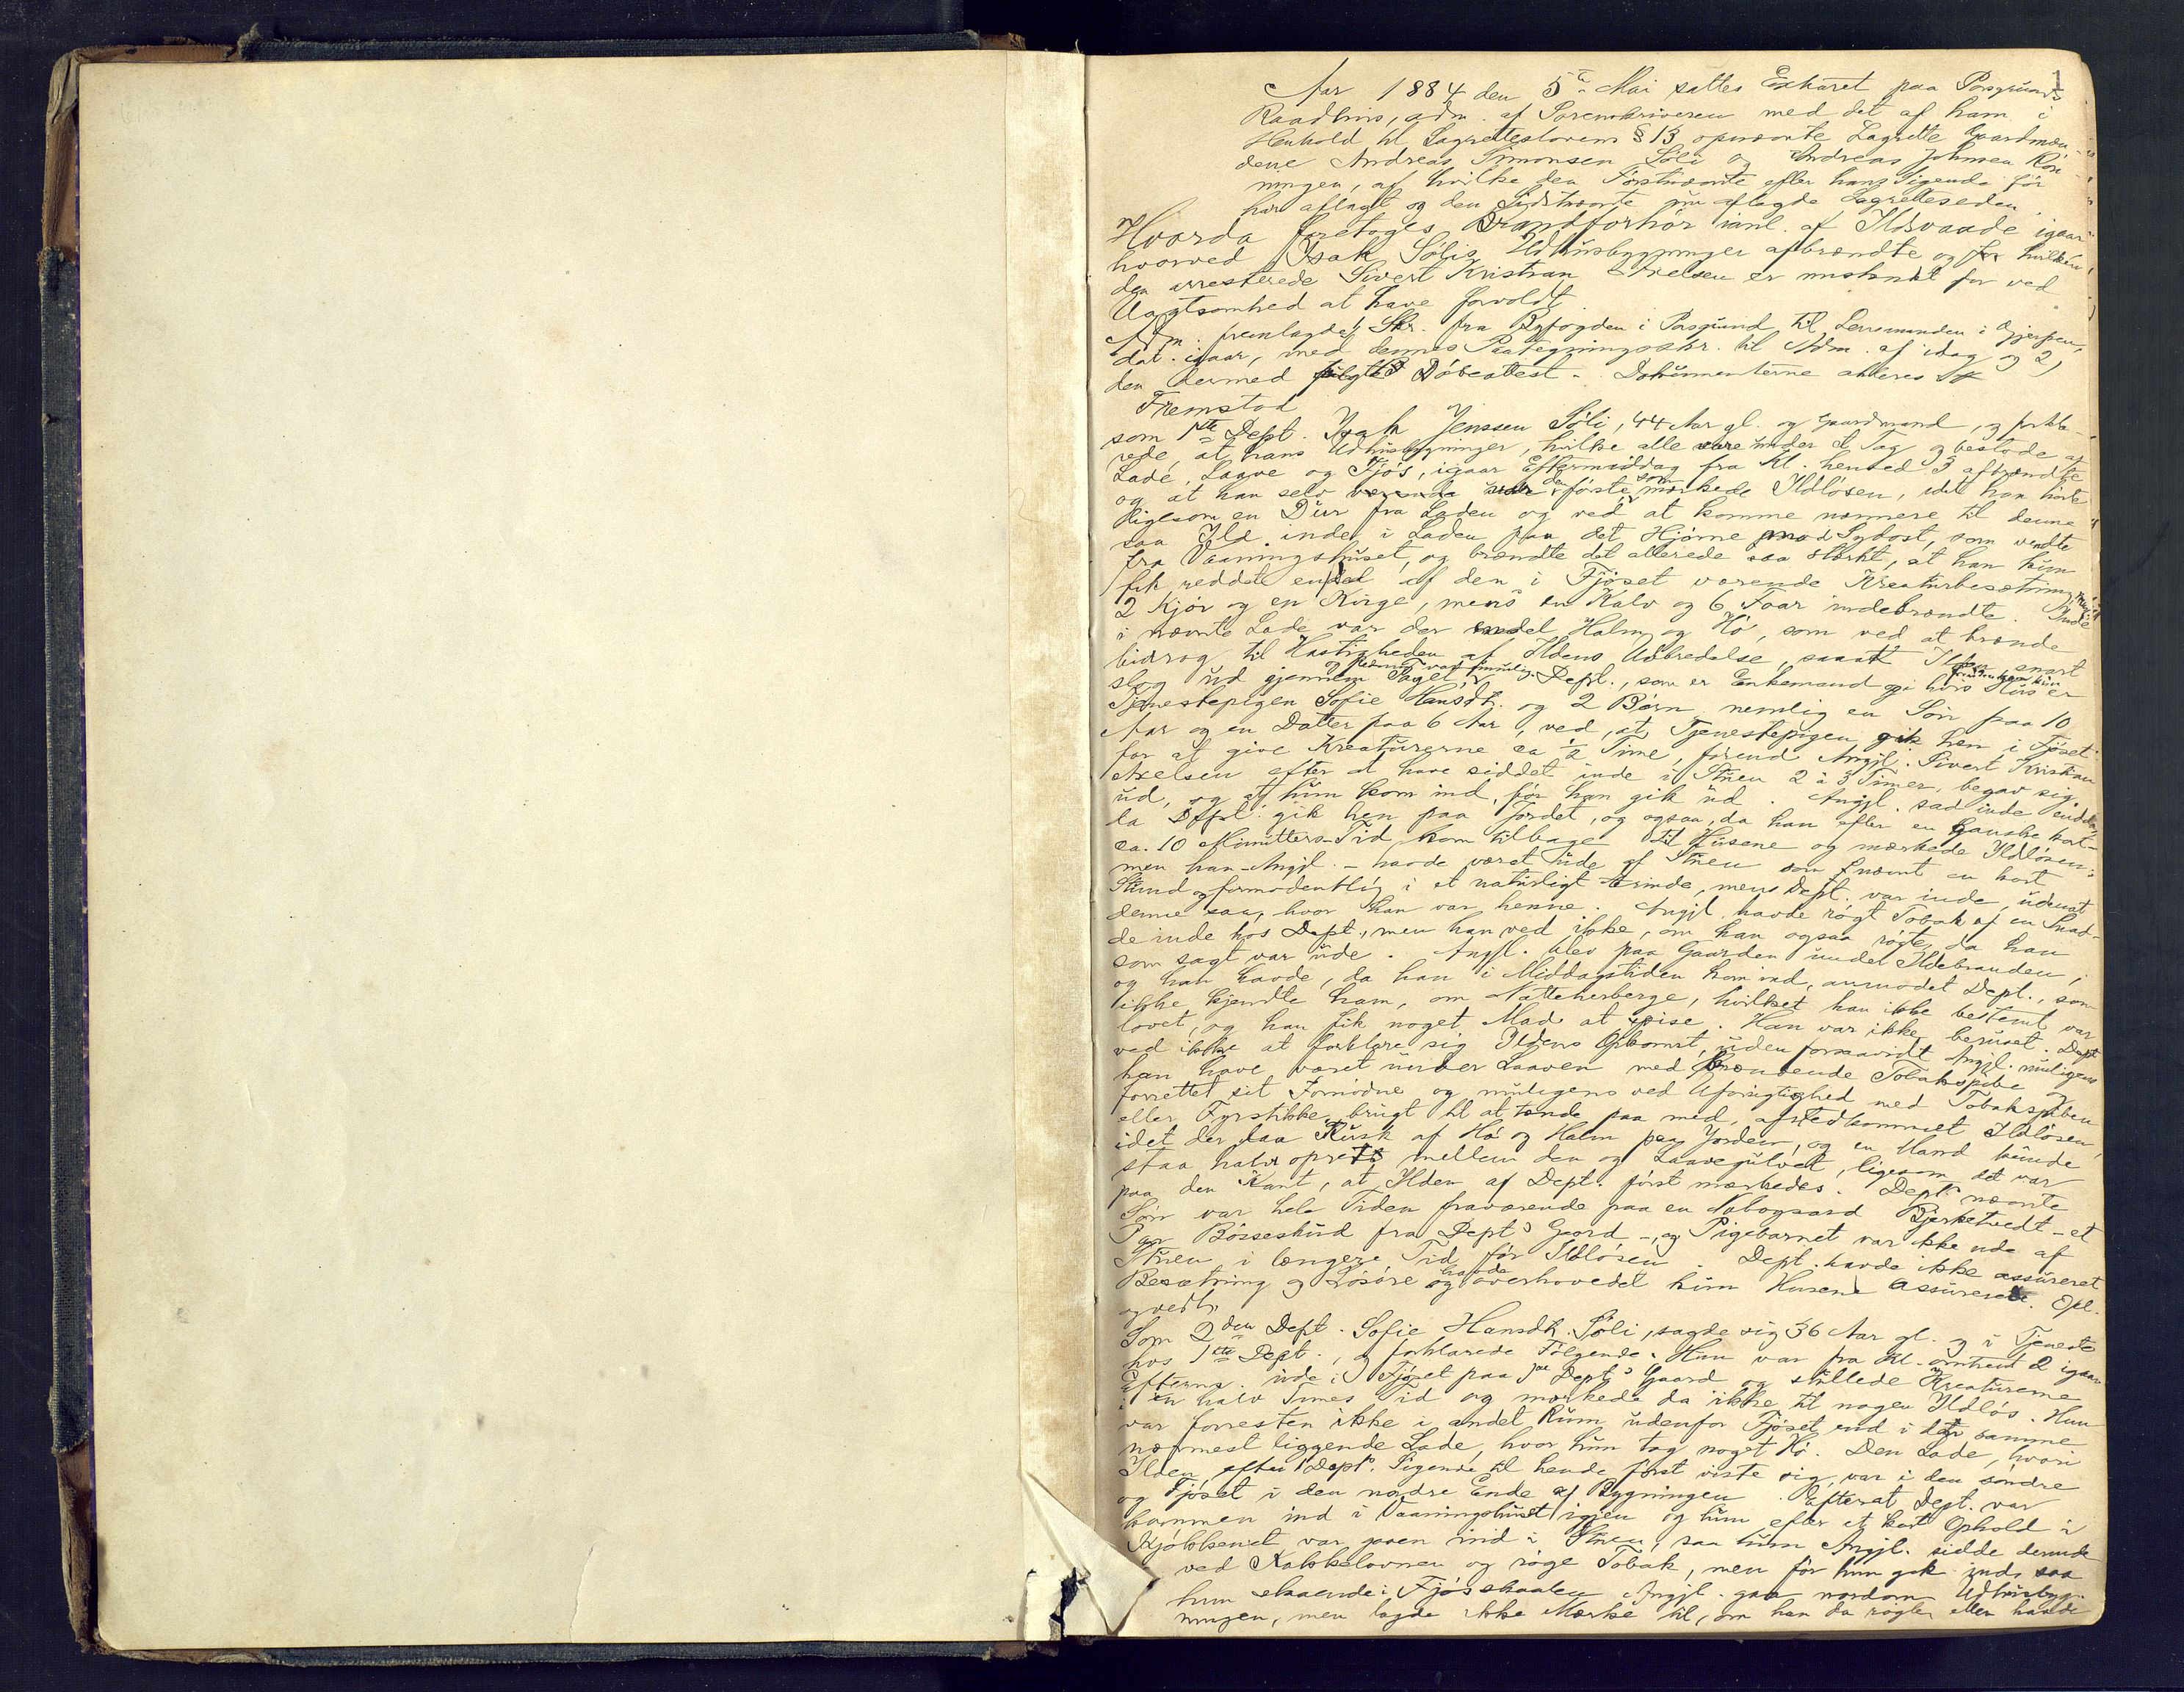 1
Aar 1884 den 5te Mai sattes Extraret paa Porsgrunds
Raadhus, adm. af Sorenskriveren med det af ham i
Henhold til Lagretteslovens § 13 opnævnte Lagrette Gaardmæn-
dene Andreas Simonsen Söli og Andreas Johnsen Rön-
ningen, af hvilke den Förstnævnte efter hans Sigende för
har aflagt og den Sidstnævnte nu aflagde Lagretteseden.
Hvorda foretoges Brandforhör ianl. af Ildsvaade igaar
hvorved Isak Sölis Udhusbygninger afbrændte og for hvilken
den arresterede Sivert Kristian Axelsen er mistænkt for ved
Uagtsomhed at have forvoldt.
Adm. fremlagde 1, Skr. fra Byfogden i Porsgrund til Lensmanden i Gjerpen,
dat. igaar, med dennes Paategningsskr. til Adm. af idag og 2,
den dermed fulgte Döbeattest. Dokumenterne akteres
Fremstod
som 1ste Dept. Isak Jenssen Söli, 44 Aar gl. og Gaardmand, og forkla-
rede, at hans Udhusbygninger, hvilke alle vare under et Tag og bestode af
Lade, Laave og Fjös, igaar Eftermiddag fra Kl. henved 3 afbrændte
og at han selv den förste som mærkede Ildlösen, idet han hörte
ligesom en Dur fra Laden og ved at komme nærmere til denne
saa Ild inde i Laden paa det Hjörne mod Sydost, som vendte
fra Vaaningshuset, og brændte det allerede saa stærkt, at han kun
fik reddet endel af den i Fjöset værende Kreaturbesætning,
2 Kjör og en Kvige, mens en Kalv og 6 Faar indebrændte. Inde
i nævnte Lade var der endel Halm og Hö, som ved at brænde
bidrog til Hastigheden af Ildens Udbredelse, saaat Ilden snart
slog ud gjennem Taget, og Redning var umulig. Dept., som er Enkemand og i hvis Hus er
Tjenestepigen Sofie Hansdtr. og 2 Börn, nemlig en Sön paa 10
Aar og en Datter paa 6 Aar, ved, at Tjenestepigen gik hen i Fjöset
for at give Kreaturerne ca 1/2 Time, förend Angjl. Sivert Kristian
Axelsen efter at have siddet inde i Stuen 2 à 3 Timer, begav sig
ud, og at hun kom ind, för han gik ud. Angjl. sad inde endda,
da Dept. gik hen paa Jordet, og ogsaa, da han efter en ganske kort
ca. 10 Minutters Tid kom tilbage til Husene og mærkede Ildlösen;
men han - Angjl. - havde været ude af Stuen som nævnt en kort
Stund og formodentlig i et naturligt Ærinde, mens Dept. var inde, udenat
denne saa, hvor han var henne. Angjl. havde rögt Tobak af en Snad-
de inde hos Dept., men han ved ikke, om han ogsaa rögte, da han
som sagt var ude. Angjl. blev paa Gaarden under Ildebranden,
og han havde, da han i Middagstiden kom ind, anmodet Dept., som
ikke kjendte ham, om Natteherberge, hvilket han ikke bestemt var
lovet, og han fik noget Mad at spise. Han var ikke beruset. Dept.
ved ikke at forklare sig Ildens Opkomst, uden forsaavidt Angjl. muligens
kan have været under Laaven med brændende Tobakspibe og
forrettet sit Fornödne og muligens ved Uforsigtighed med Tobakspiben
eller Fyrstikke, brugt til at tænde paa med, afstedkommet Ildlösen,
idet der laa Rusk af Hö og Halm paa Jorden, og en Mand kunde
staa halv opreist mellem den og Laavegulvet, ligesom det var
paa den Kant, at Ilden af Dept. först mærkedes. Dept.s nævnte
Sön var hele Tiden fraværende paa en Nabogaard Bjerketvedt - et
Par Bösseskud fra Dept.s Gaard -, og Pigebarnet var ikke ude af
Stuen i længere Tid för Ildlösen. Dept. havde ikke assureret
Besætning og Lösöre og havde overhovedet kun Husene assureret. Opl.
og vedt.
Som 2den Dept. Sofie Hansdtr. Söli, sagde sig 36 Aar gl. og i Tjeneste
hos 1ste Dept., og forklarede Fölgende: Hun var fra Kl. omtrent 2 igaar
Efterm. inde i Fjöset paa 1ste Dept.s Gaard og stillede Kreaturerne
i en halv Times Tid og mærkede da ikke til nogen Ildlös. Hun
var forresten ikke i andet Rum udenfor Fjöset end i den samme
nærmest liggende Lade, hvor hun tog noget Hö. Den Lade, hvori
Ilden efter 1 Dept.s Sigende til hende först viste sig, var i den söndre
og Fjöset i den nordre Ende af Bygningen. Efterat Dept. var
kommen ind i Vaaningshuset igjen og hun efter et kort Ophold i
Kjökkenet var gaaen ind i Stuen, saa hun Angjl. sidde derinde
ved Kakkelovnen og röge Tobak, men för hun gik ind, saa
hun staaende i Fjösskaalen Angjl. gaa nordom Udhusbyg-
ningen, men lagde ikke Mærke til, om han da rögte eller havde